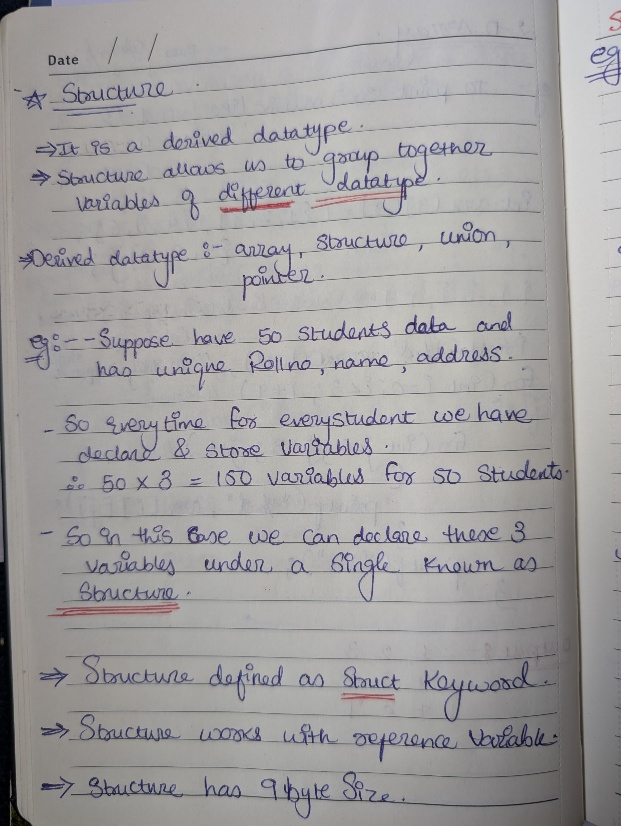 Date / /
☆ Structure.
⇒ It is a derived datatype.
⇒ Structure allows us to group together
variables of different datatype.
⇒ Derived datatype :- array, structure, union,
pointer.
eg:-- Suppose have 50 students data and
has unique Rollno, name, address.
- So everytime for everystudent we have
declare & store variables.
∴ 50 x 3 = 150 variables for 50 Students.
- So in this case we can declare these 3
variables under a single known as
Structure.
⇒ Structure defined as Struct Keyword.
⇒ Structure works with reference variable.
⇒ Structure has 9 byte Size.
S
eg